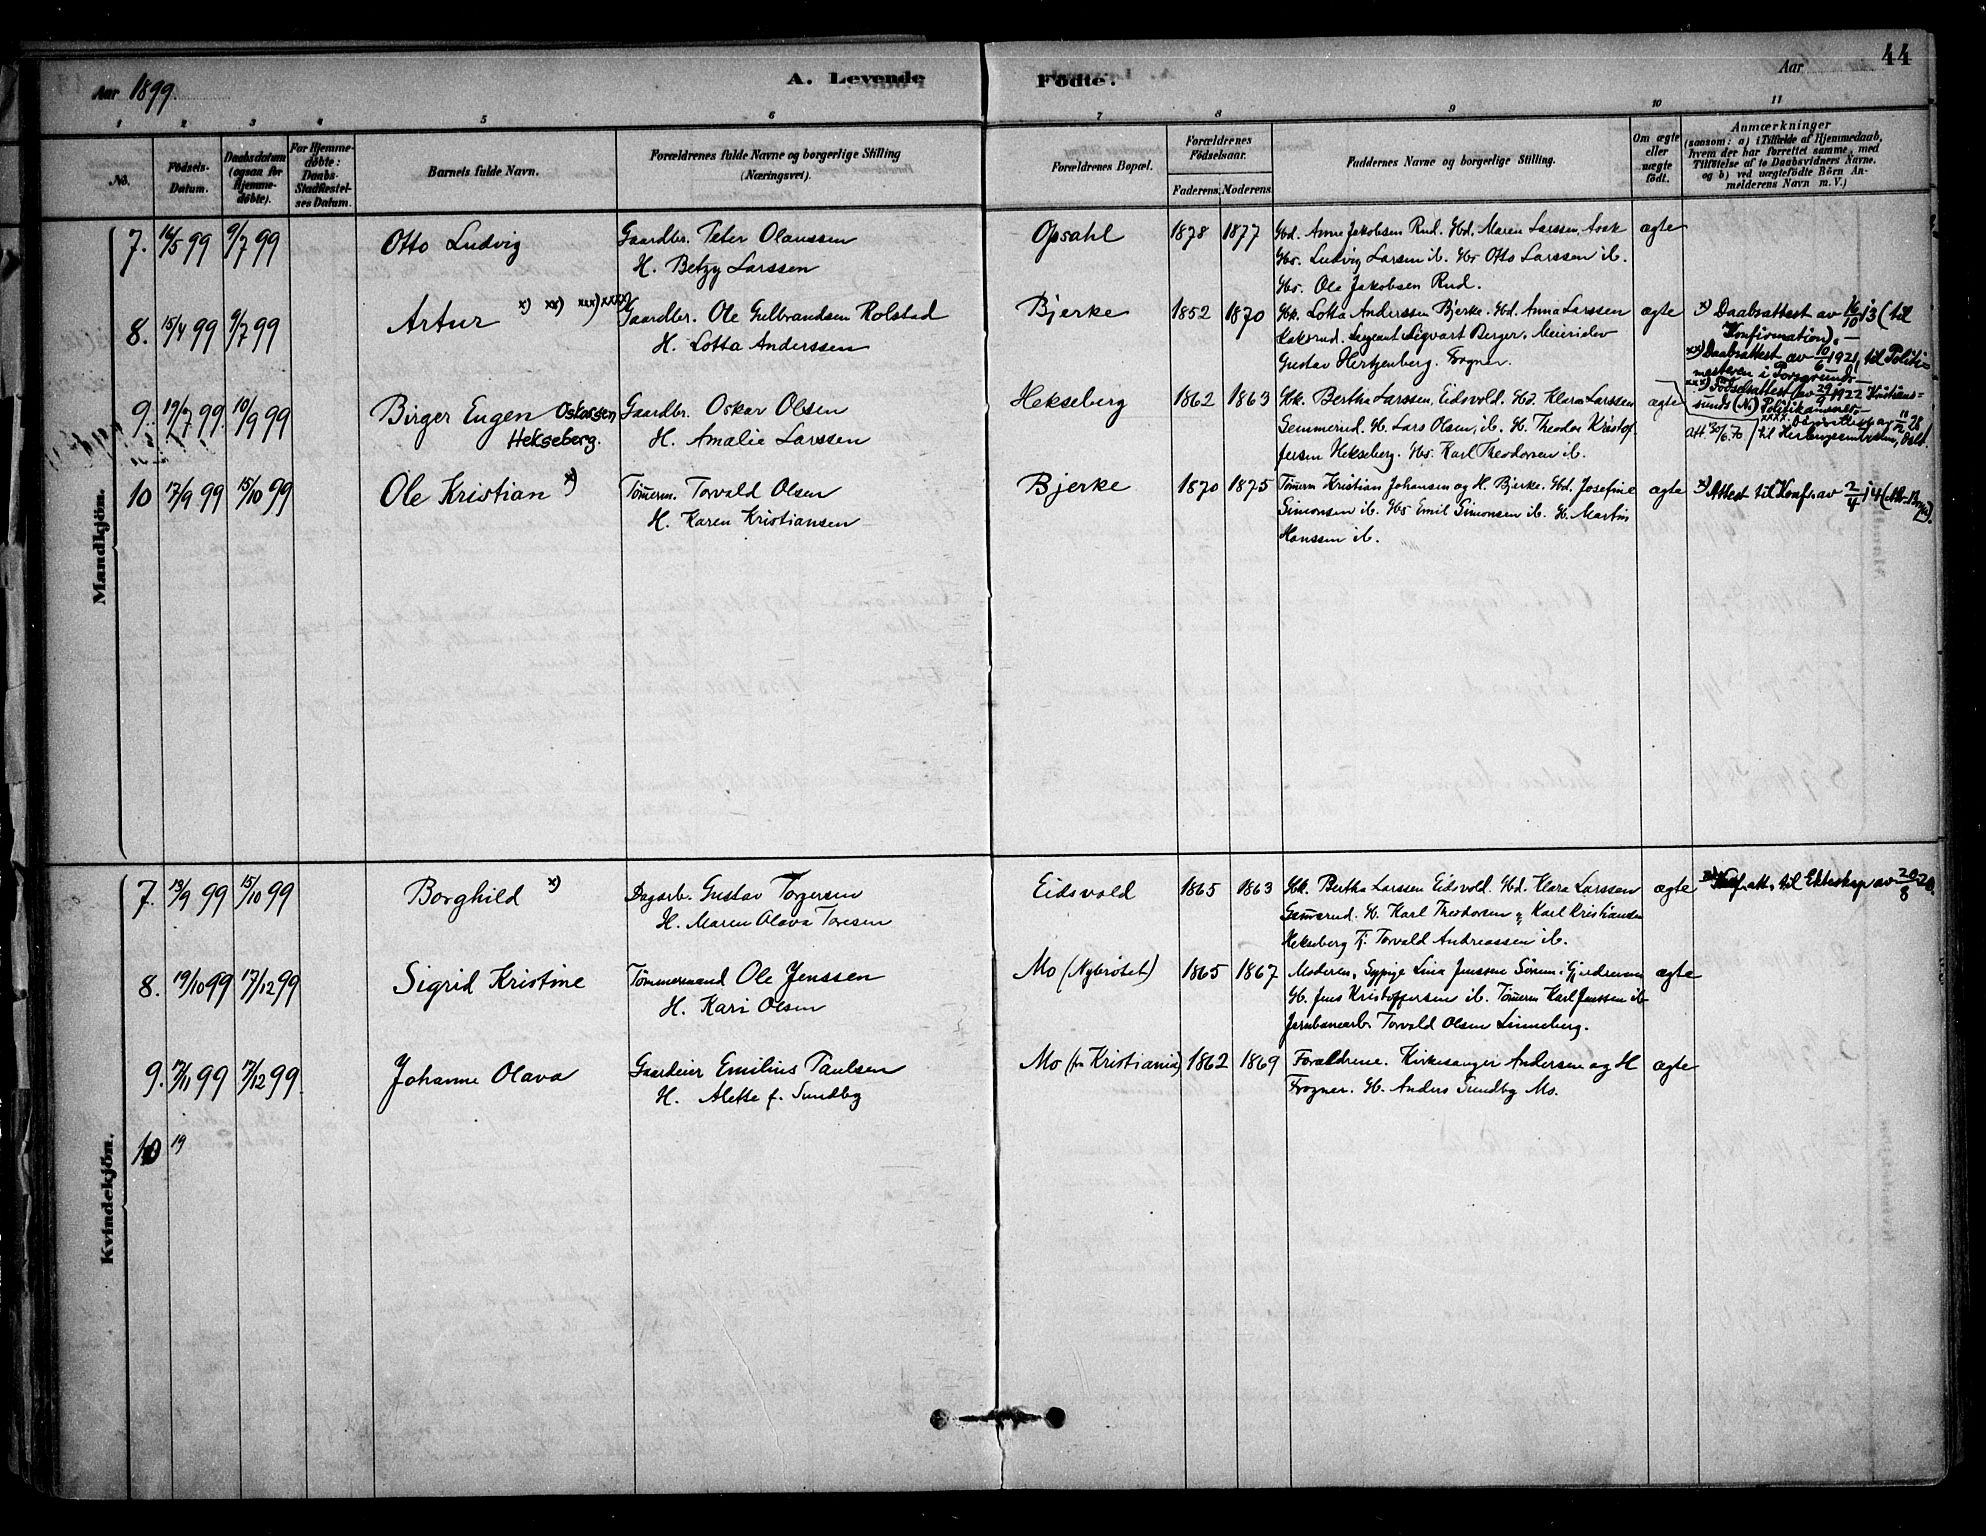 44
Aar 1899.
A. Levende Fødte.
Aar
1 2 3 4 5 6 7 8 9 10 11
No.
Fødsels-Datum.
Daabsdatum (ogsaa for Hjemmedøbte).
For Hjemmedøbte: Daabs-Stadfæstelses Datum.
Barnets fulde Navn.
Forældrenes fulde Navne og borgerlige Stilling (Næringsvei).
Forældrenes Bopæl.
Forældrenes Fødselsaar.
Faderens. Moderens.
Faddernes Navne og borgerlige Stilling.
Om ægte eller uægte født.
Anmærkninger
(saasom: a) i Tilfælde af Hjemmedaab, hvem der har forrettet samme, med Tilføielse af to Daabsvidners Navne. og b) ved uægtefødte Börn Anmelderens Navn m. V.)
Mandkjön.
7. 16/5 99 9/7 99 Otto Ludvig Gaardbr. Peter Olaussen Opsahl 1878 1877 Gbd. Anne Jakobsen Rud. Gbd. Maren Larssen, Aask ægte
H. Betzy Larssen Gbs. Ludvig Larsen ib. Gbs Otto Larssen ib.
Gbs. Ole Jakobsen Rud.
8. 15/4 99 9/7 99 Artur x) xx) xxx) xxxx) Gaardbr. Ole Gulbrandsen Rolstad Bjerke 1852 1870 Gbk. Lotta Anderssen Bjerke. Gbd. Anna Larssen ægte x) Daabsattest av 16/10 13 (til
H. Lotta Anderssen Sergeant Sigvart Berger. Meierielev Konfirmation). —
Gustav Hertzenberg. Frogner. xx) Daabsattest av 10/6 1921, til Politimesteren i Porsgrund —
9. 19/7 99 10/9 99 Birger Eugen Oskarsen Gaardbr. Oskar Olsen Hekseberg 1862 1863 Gbk. Bertha Larssen, Eidsvold. Gbd. Klara Larssen ægte xxx) Fødselsattest av 29/7 1922 Kristiansunds (N) Politikammer —
Hekseberg. H. Amalie Larssen Gemmerud. G. Lars Olsen, ib. G. Theodor Kristoffersen Hekseberg. Gbs. Karl Theodorsen ib. Att. 30/6.70
10 17/9 99 15/10 99 Ole Kristian x) Tömerm. Torvald Olsen Bjerke 1870 1875 Tömerm Kristian Johansen og H. Bjerke. Gbd. Josefine ægte x) Attest til Konf. av 2/4 14
H. Karen Kristiansen Simonsen ib. Gbs Emil Simonsen ib. G. Martin
Hanssen ib.
Kvindekjön.
7. 13/9 99 15/10 99 Borghild x) Dagarb. Gustav Torgersen Eidsvold 1865 1863 Gbk. Bertha Larssen Eidsvold. Gbd. Klara Larssen ægte x) att. til Ekteskap av 20/8 20.
H. Maren Olava Toresen G. Karl Theodorsen Karl Kristiansen
Hekseberg Tj. Torvald Andreassen ib.
8. 19/10 99 17/12 99 Sigrid Kristine Tömmermand Ole Jenssen Mo (Nybrøtet) 1865 1867 Moderen, Sypige Lina Jenssen Sørum i Gjerdrum ægte
H. Kari Olsen G. Jens Kristoffersen ib. Tömerm Karl Jenssen ib
Jernbanearb. Torvald Olsen Linneberg.
9. 17/11 99 17/12 99 Johanne Olava Gaardeier Emilius Paulsen Mo (fra Kristiania) 1862 1869 Forældrene. Kirkesanger Andersen og H ægte
H. Alette f. Sundby Frogner. G. Anders Sundby Mo.
10 19